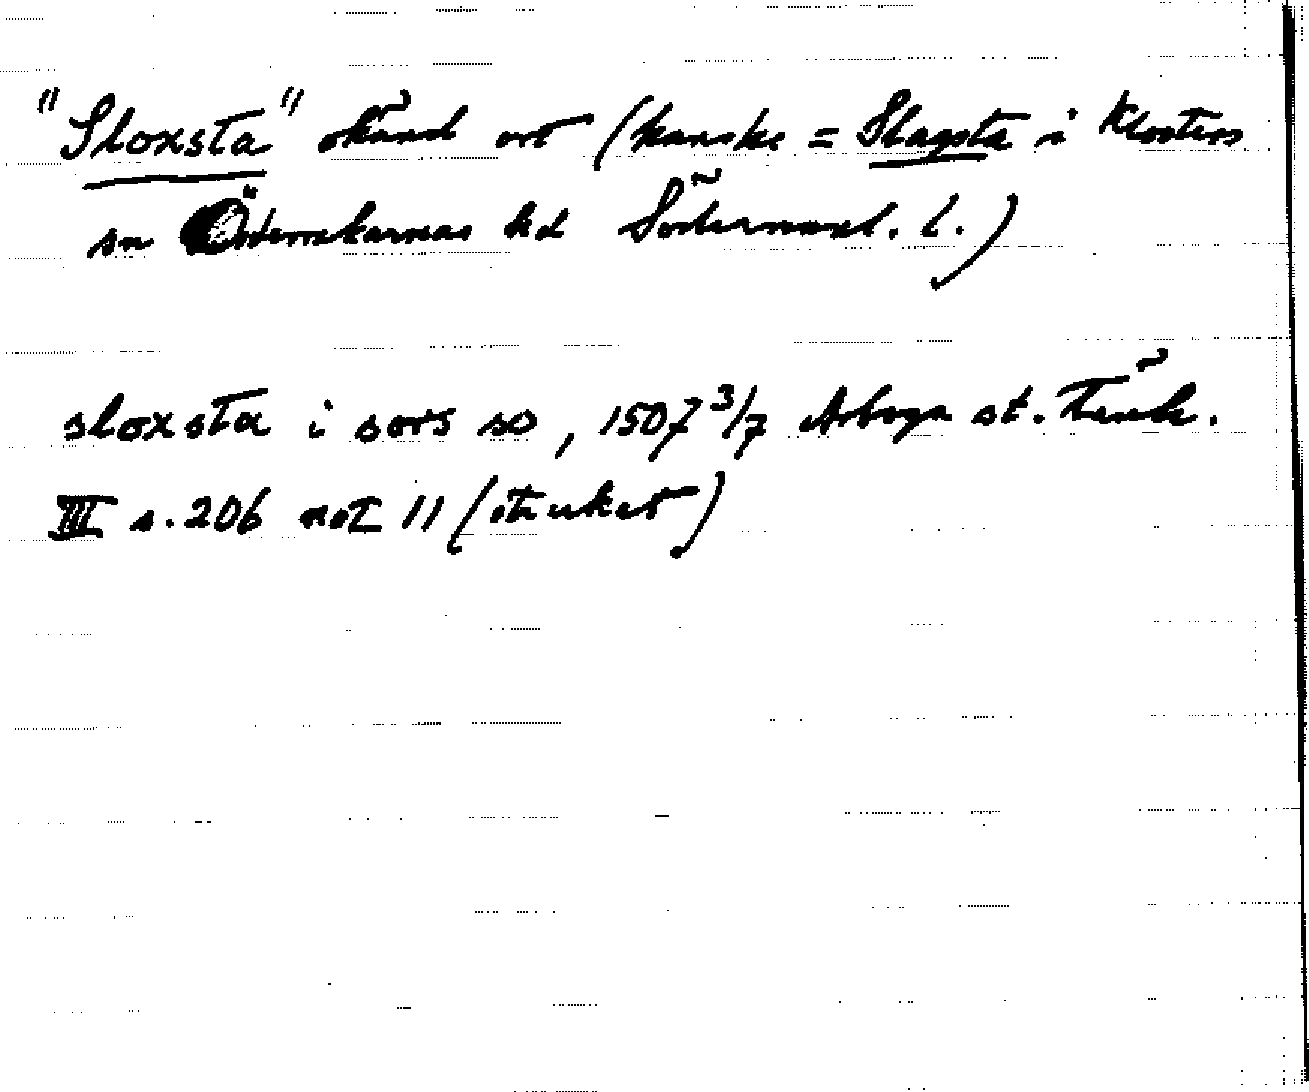 "Sloxsta" okänd ort (kanske = Slagsta i Klosters
sn Österrekarnas hd Södermanl. l.)
sloxsta i sors so, 1507 3/7 Arboga st. Tänk.
III s. 206 not 11 (struket)